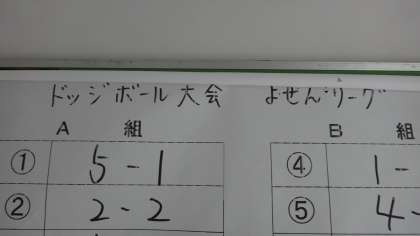 ドッジボール大会 よせんリーグ
A 組 B 組
① 5-1 ④ 1-
② 2-2 ⑤ 4-